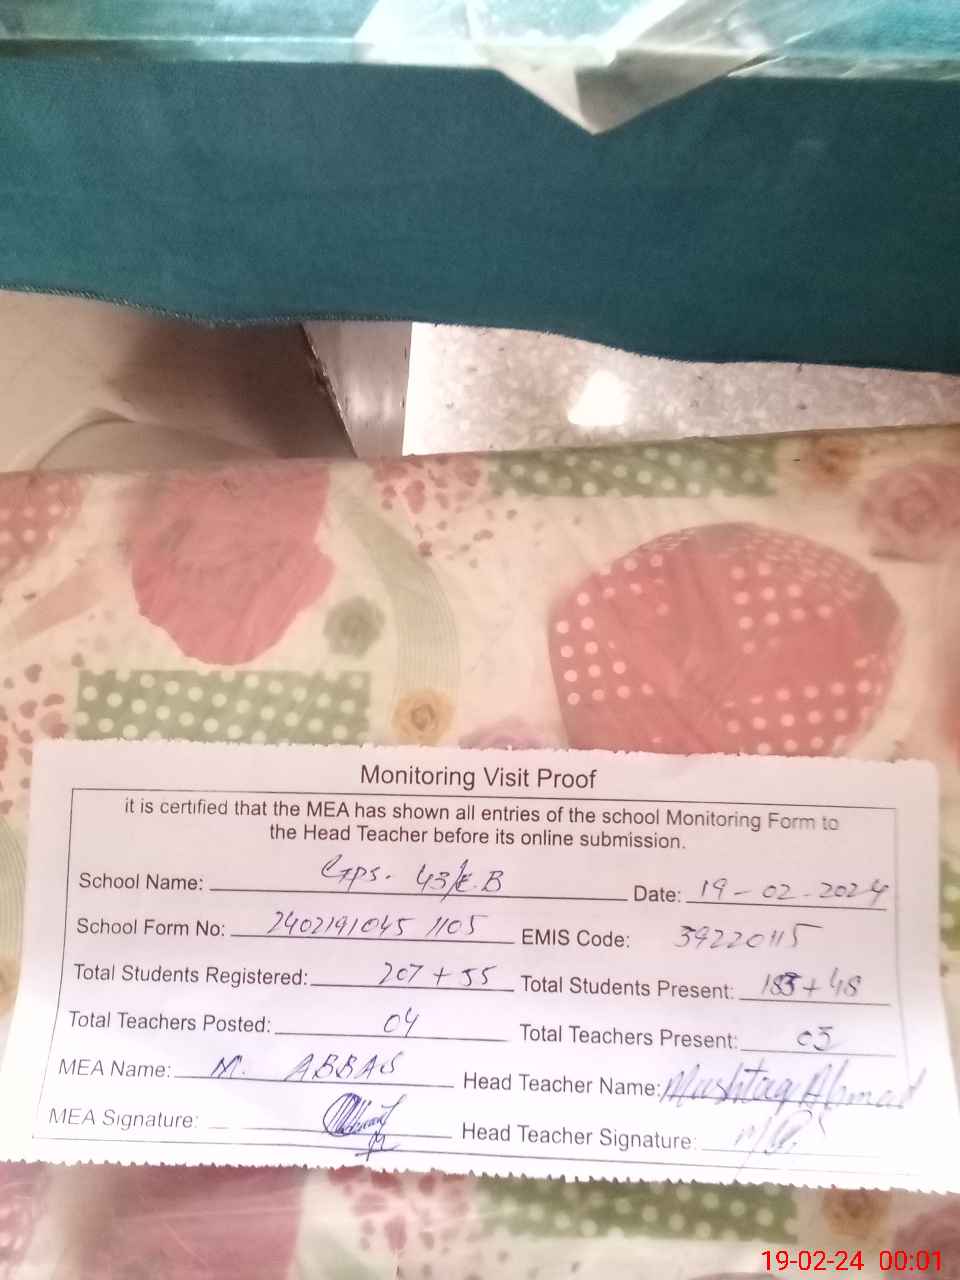 Monitoring Visit Proof
it is certified that the MEA has shown all entries of the school Monitoring Form to
the Head Teacher before its online submission.
School Name: GPS. 43/E.B Date: 19-02-2024
School Form No: 2402191045 1105 EMIS Code: 39220115
Total Students Registered: 207+55 Total Students Present: 183+48
Total Teachers Posted: 04 Total Teachers Present: 03
MEA Name: M. ABBAS Head Teacher Name: Mushtaq Ahmad
MEA Signature: Head Teacher Signature:
19-02-24 00:01